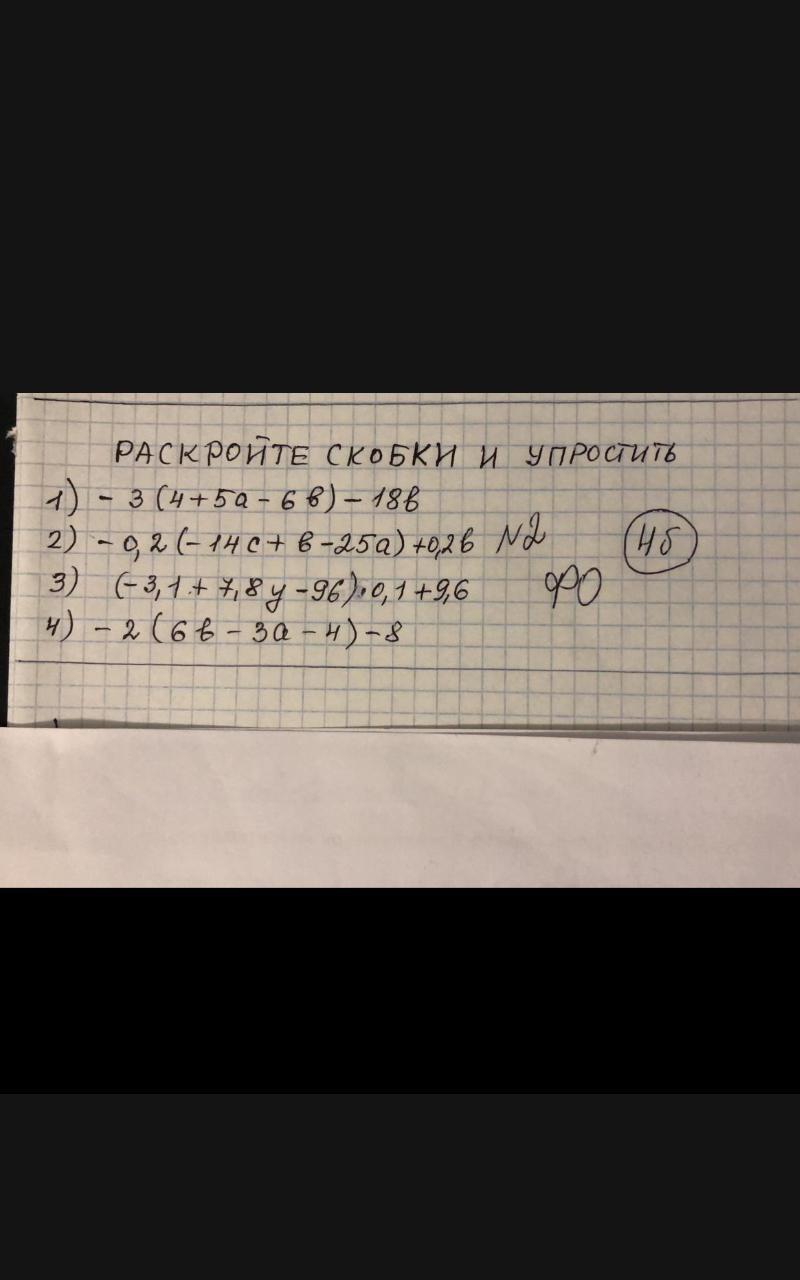 РАСКРОЙТЕ СКОБКИ И УПРОСТИТЬ
1) - 3 (4+5а - 6в) - 18в
2) - 0,2 (-14с + в - 25а) + 0,2в N2 4б
3) (-3,1 + 7,8у - 96)·0,1 + 9,6 ФО
4) - 2 (6в - 3а - 4) - 8